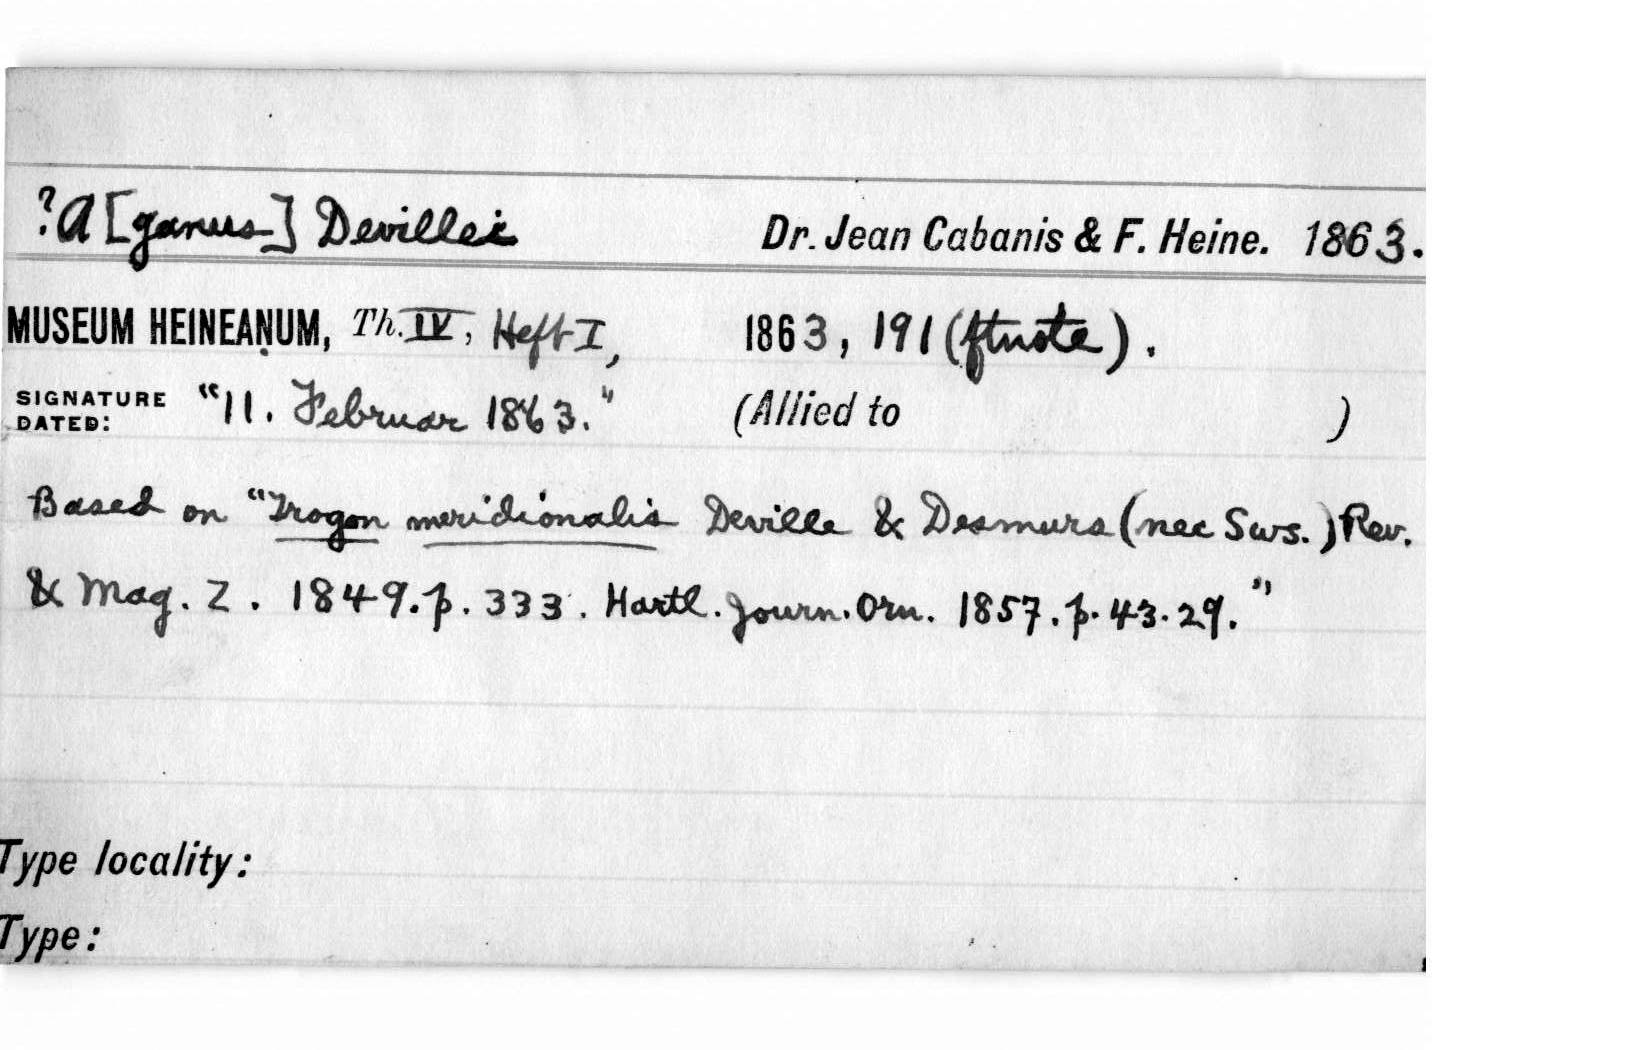 ?A[ganus] Devillei Dr. Jean Cabanis & F. Heine. 1863.
MUSEUM HEINEANUM, Th. IV, Heft I, 1863, 191 (ftnote).
SIGNATURE DATED: "11. Februar 1863." (Allied to )
Based on "Trogon meridionalis Deville & Desmurs (nec Sws.) Rev.
& Mag. Z. 1849. p. 333. Hartl. Journ. Orn. 1857. p. 43. 29."
Type locality:
Type: